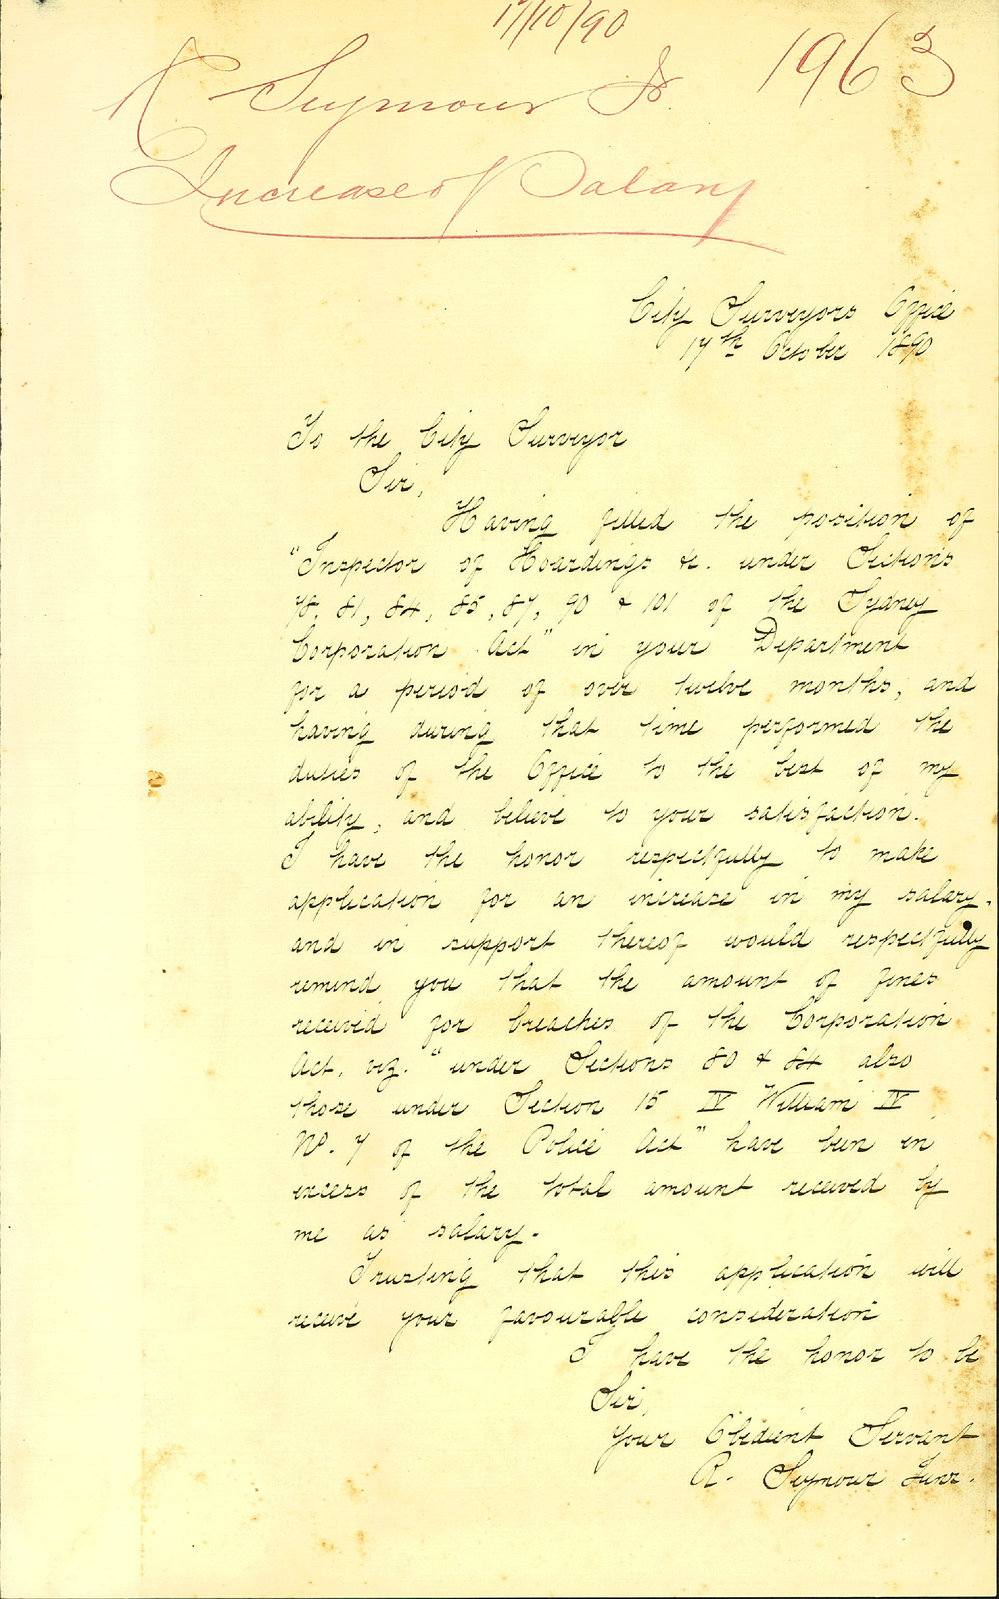 17/10/90
1963
R Seymour Jr.
Increase of Salary
City Surveyors Office
17th October 1890
To the City Surveyor
Sir,
Having filled the position of
"Inspector of Hoardings &c. under Sections
78, 81, 84, 85, 87, 90 & 101 of the Sydney
Corporation Act" in your Department
for a period of over twelve months, and
having during that time performed the
duties of the Office to the best of my
ability, and believe to your satisfaction.
I have the honor respectfully to make
application for an increase in my salary.
and in support thereof would respectfully
remind you that the amount of fines
received for breaches of the Corporation
Act, viz. "under Sections 80 & 84 also
those under Section 15 IV William IV
No. 7 of the Police Act" have been in
excess of the total amount received by
me as salary.
Trusting that this application will
receive your favourable consideration
I have the honor to be
Sir,
Your Obedient Servant
R. Seymour Junr.